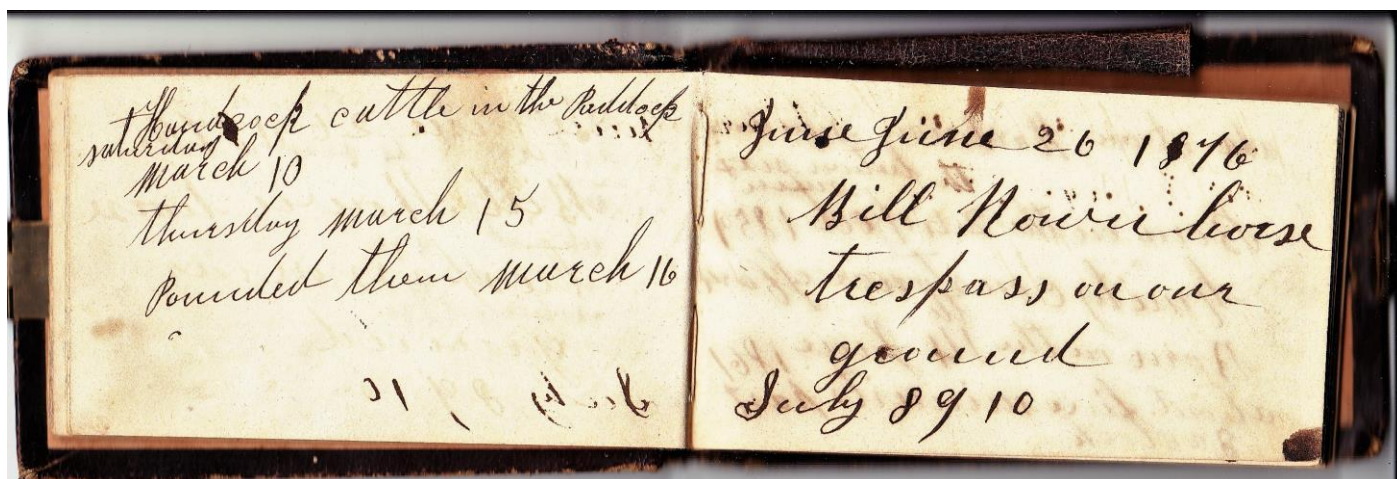 Handcock cattle in the Paddock
saturday
march 10
thursday march 15
Pounded them march 16
June June 26 1876
Bill horse
trespass on our
ground
July 8 9 10